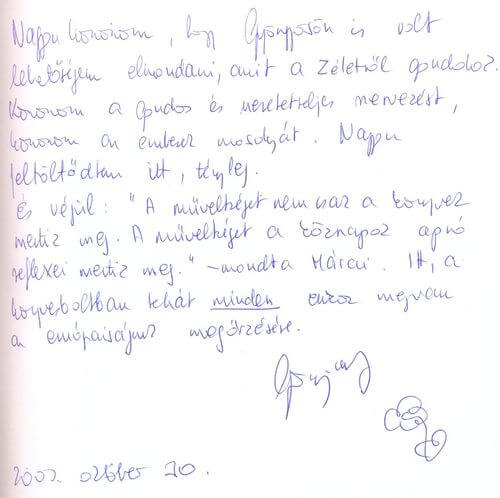 Nagyon köszönöm, hogy Gyöngyösön is volt
lehetőségem elmondani, amit a Zéletről gondolok.
Köszönöm a gondos és szeretetteljes szervezést,
köszönöm az emberek mosolyát. Nagyon
feltöltődtem itt, tényleg.
És végül: "A műveltséget nem csak a könyvek
mentik meg. A műveltséget a köznapok apró
reflexei mentik meg." - mondta Márai. Itt, a
könyvesboltban tehát minden eszköz megvan
az európaiságunk megőrzésére.
október 20.